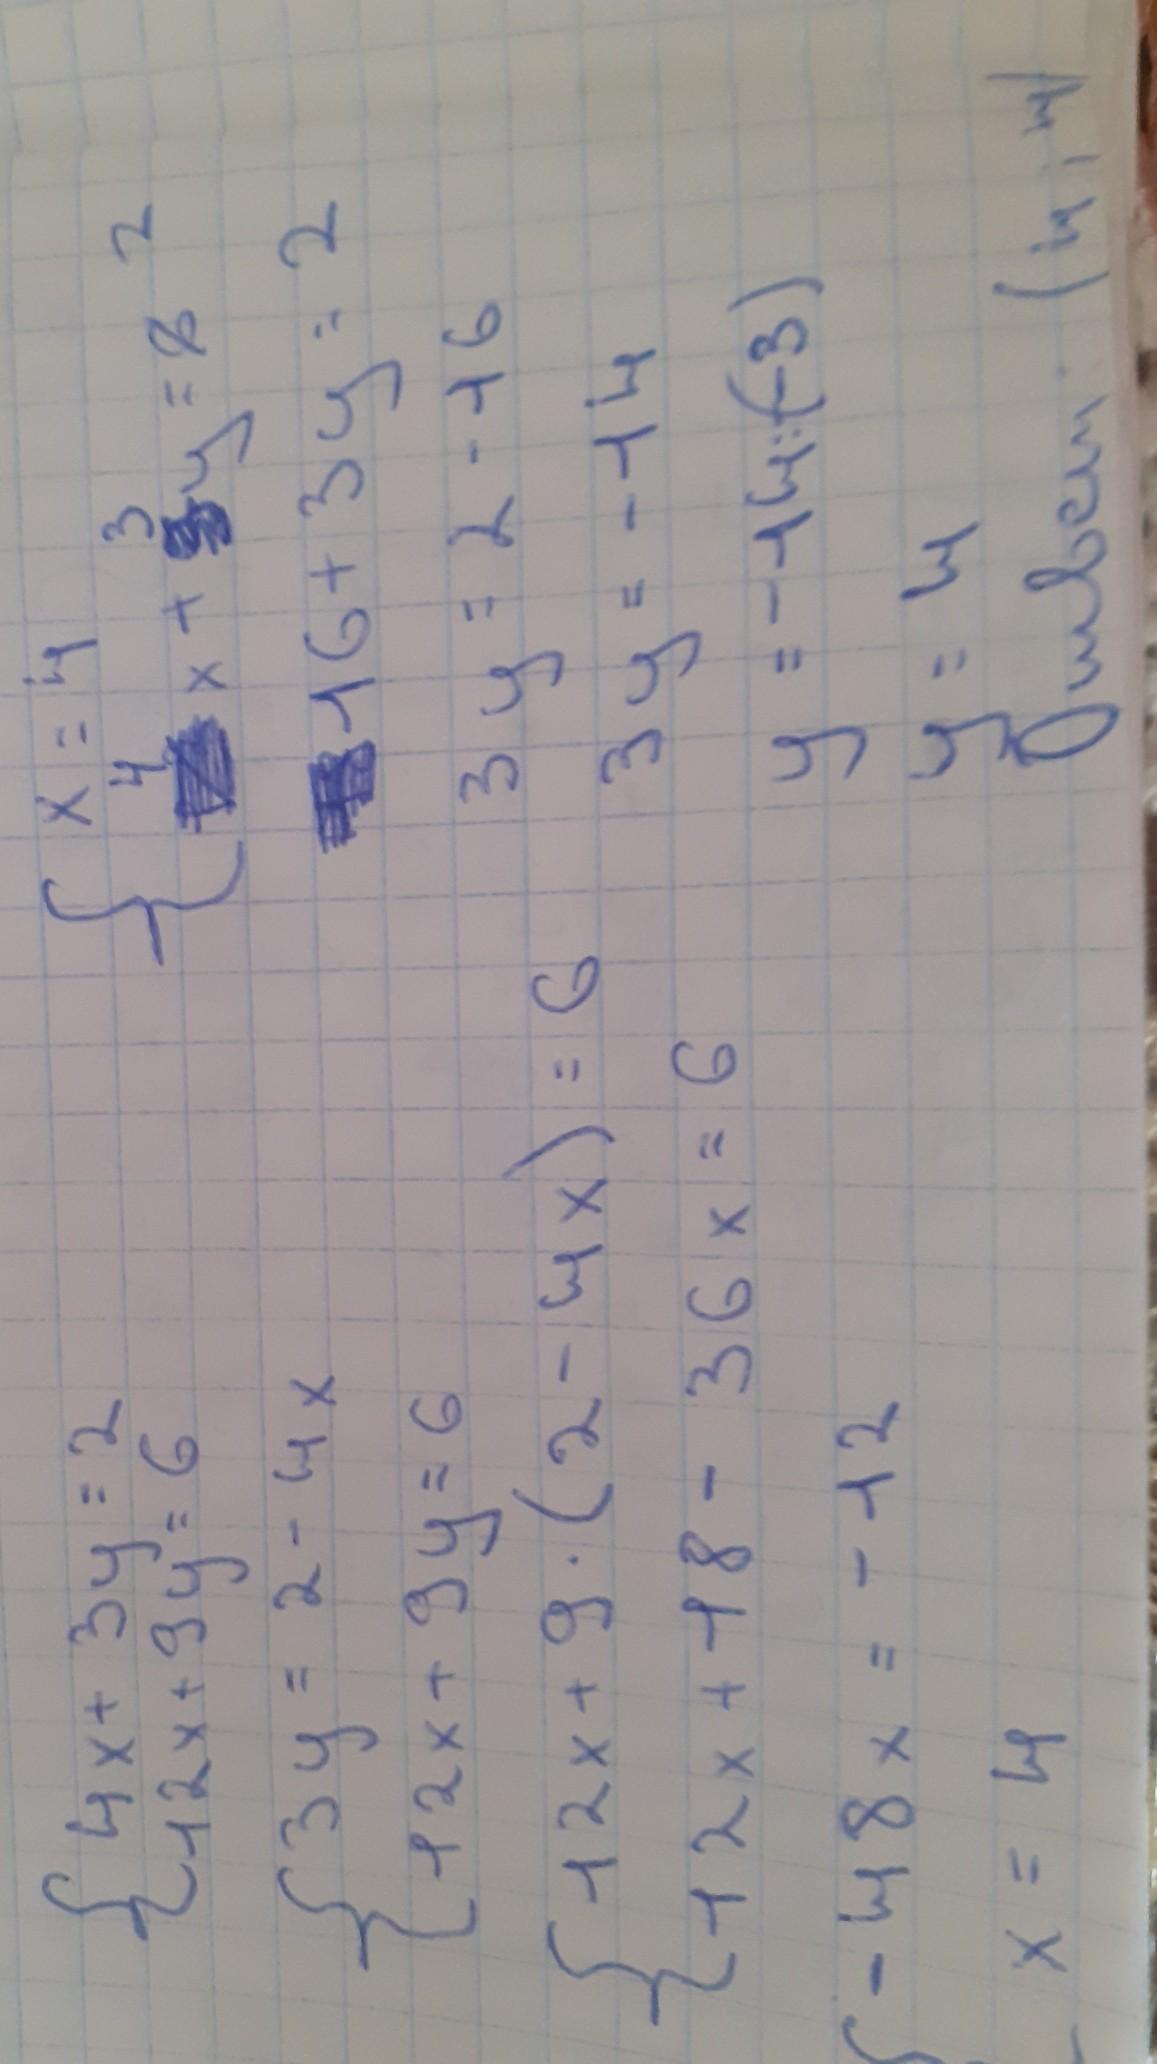 {4x+3y=2
{12x+9y=6
{3y=2-4x
{12x+9y=6
{12x+9·(2-4x)=6
{12x+18-36x=6
{-48x=-12
x=4
{x=4
4x+3y=2
16+3y=2
3y=2-16
3y=-14
y=-14:(-3)
y=4
Ответ. (4;4)